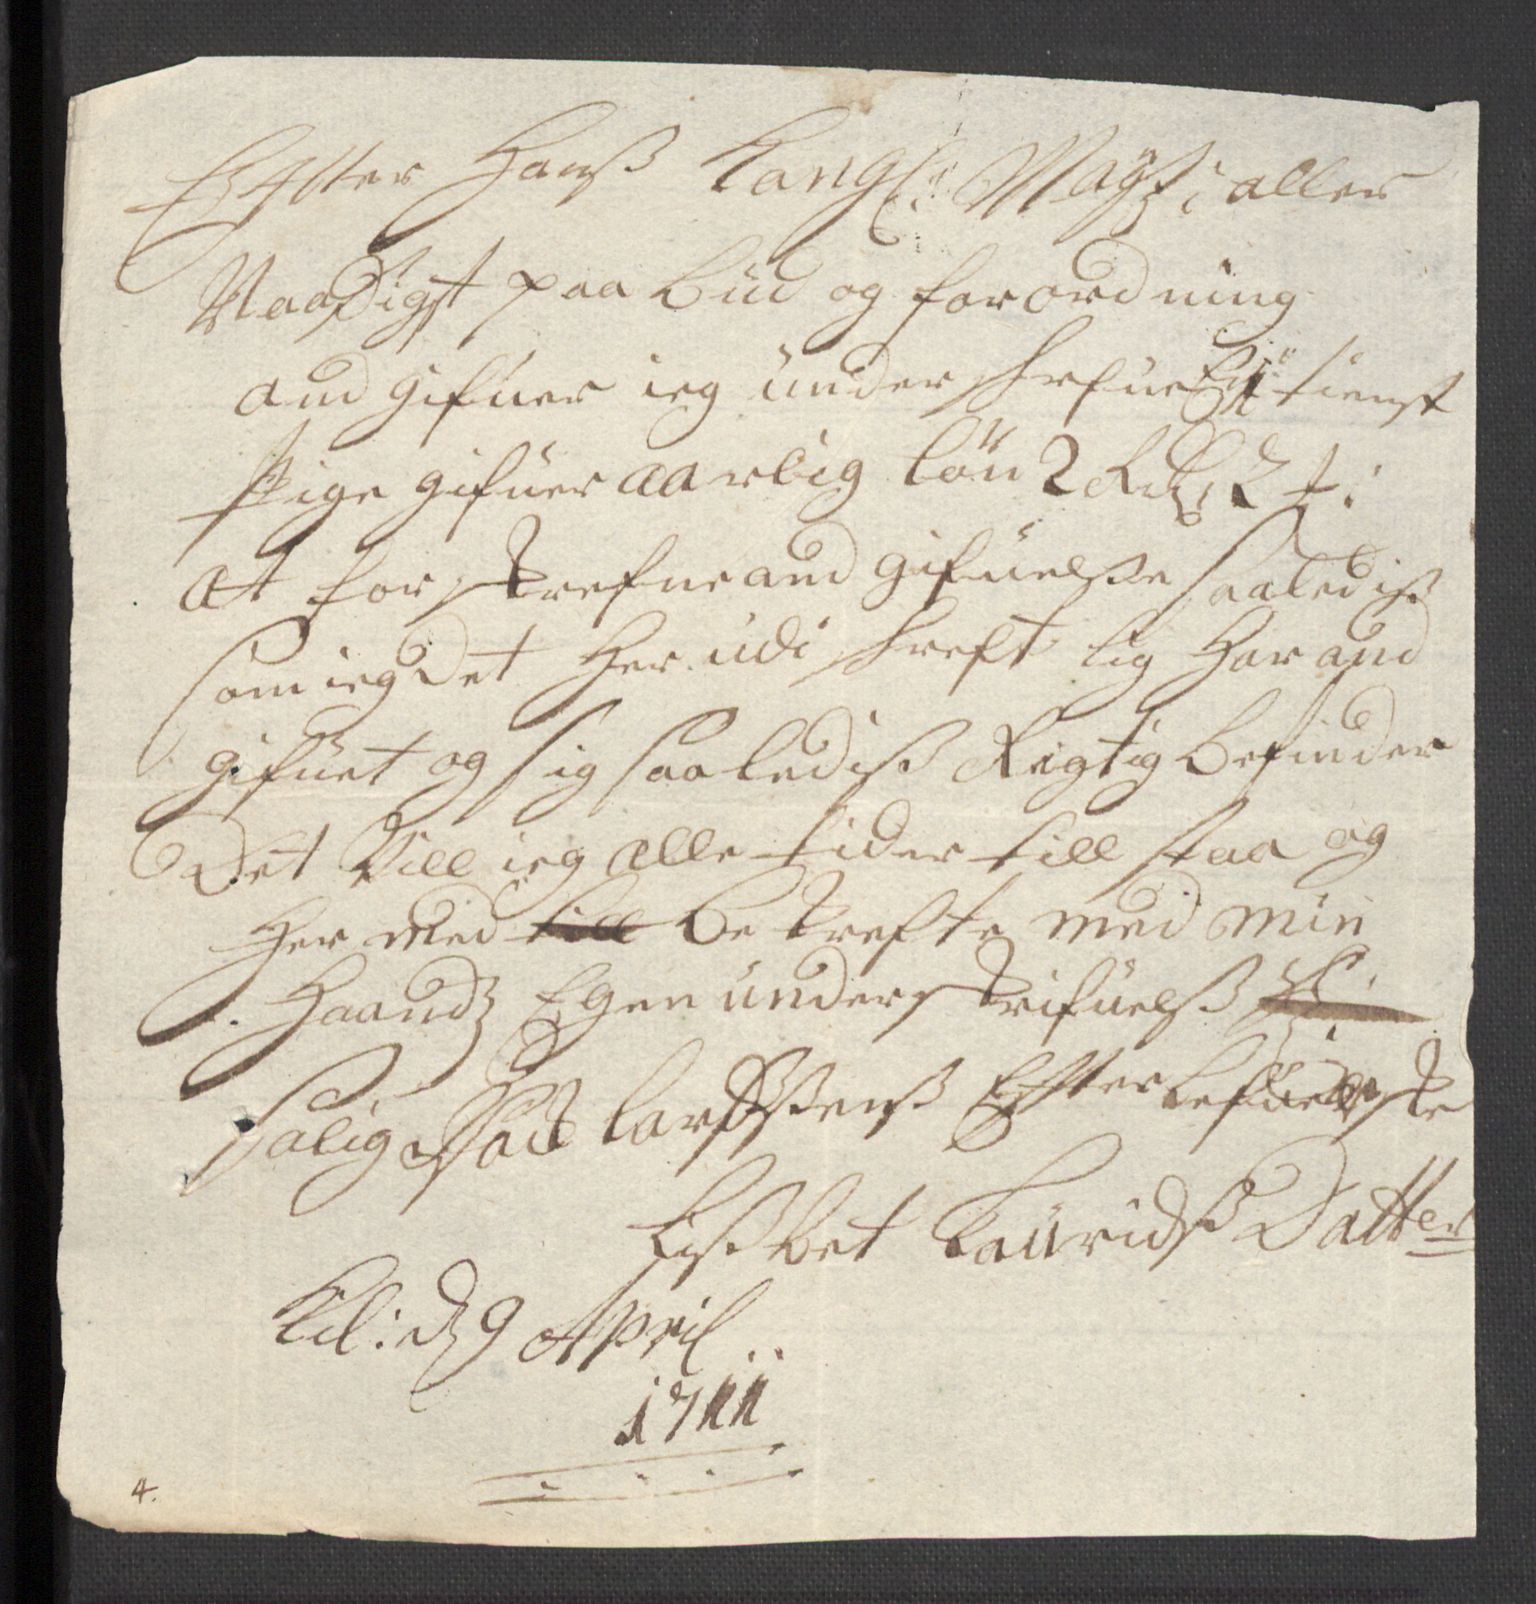 Effter Hanß Kongl: Mayst: aller
Naadigst paa büd og forordning
and gifuer ieg under skrefne En tienst
pige gifuer aarlig lön 2 Rdr 2 ţ:
At for skrefne and gifuelße saalediß
som ieg det her udi skreft lig har and
gifuet og sig saalediß Rigtig befinder
Det Vill ieg alle tider till staa og
Her med till be krefte med min
Haandz Egen underskrifuelß
Salig larßßenß Efter lefuerske
Lißbet Lauridß Datter
Kil: d 9 April
1711
4.